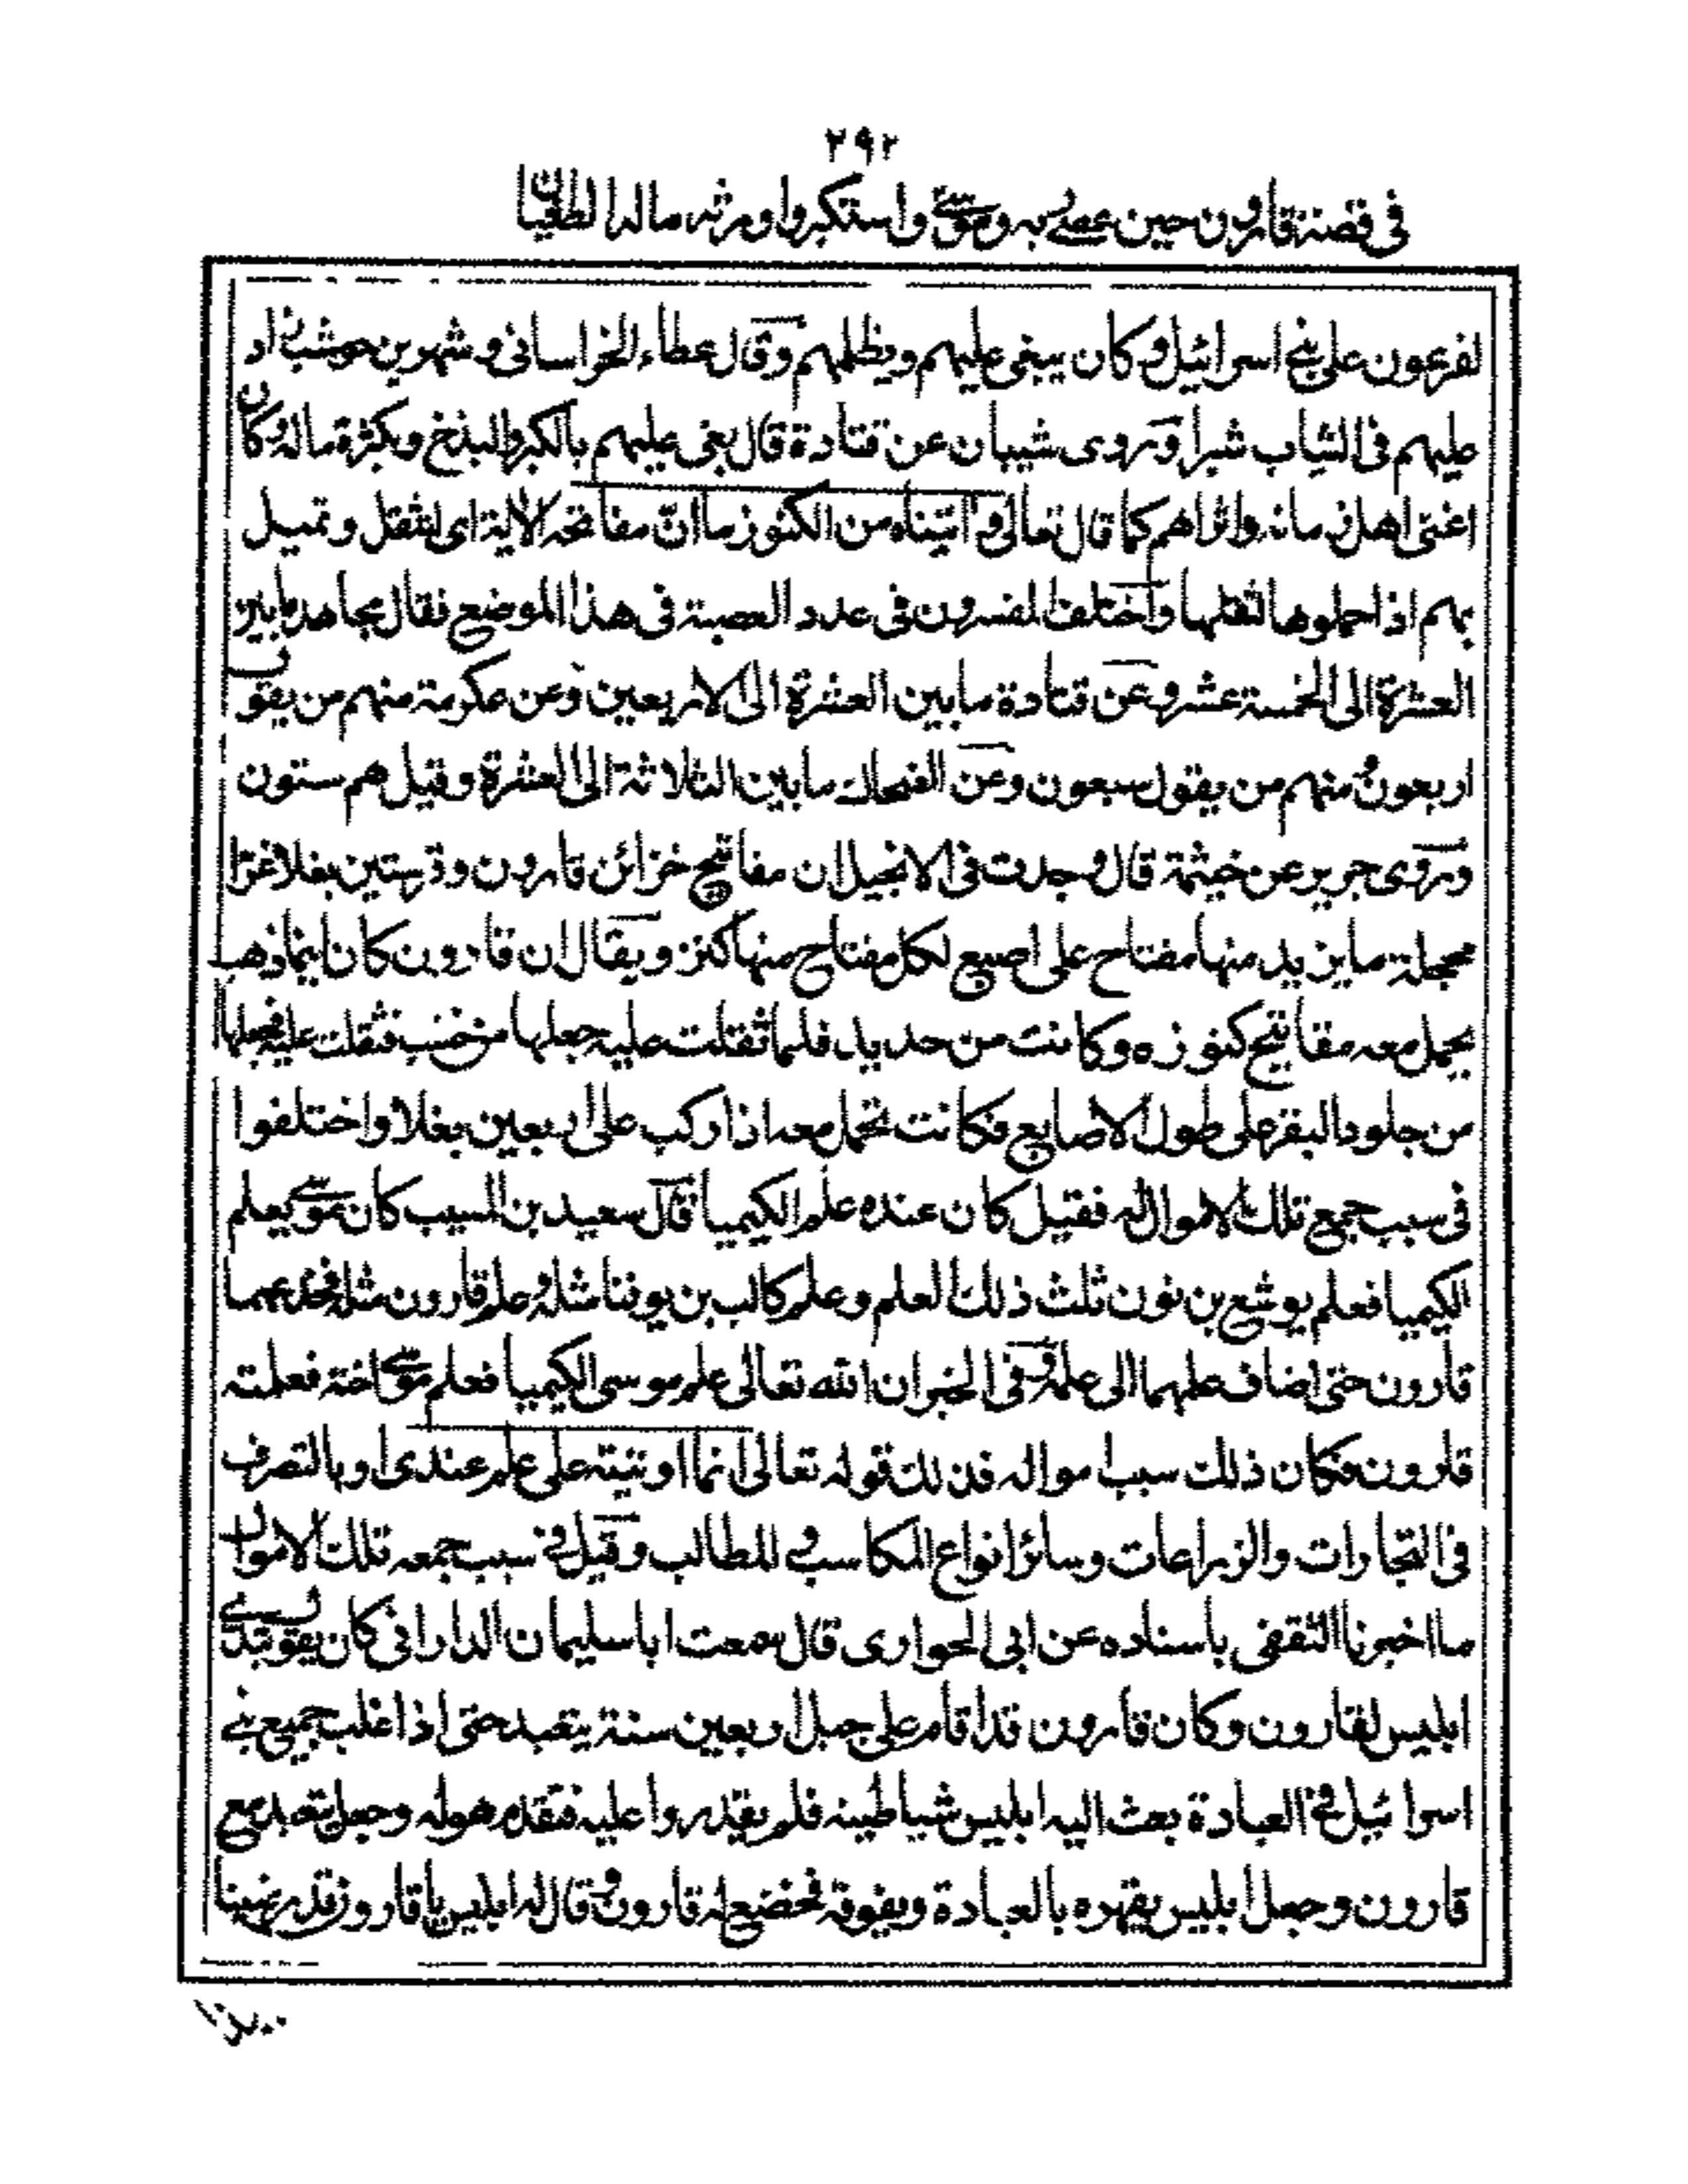 ٢٩٢
فى قصة قارون حين عصى ربه وموسى واستكبر واورثه ماله الطغيان
لفرعون على بنى اسرائيل وكان يبغى عليهم ويظلمهم وقال عطاء الخراسانى وشهر بن حوشب زاد
عليهم فى الثياب شبرا وروى شيبان عن قتادة قال بغى عليهم بالكبر والبذخ وبكثرة ماله وكان
اغنى اهل زمانه واثراهم كما قال تعالى واتيناه من الكنوز ما انّ مفاتحه الآية اى لتثقل وتميل
بهم اذا حملوها لثقلها واختلف المفسرون فى عدد العصبة فى هذا الموضع فقال مجاهد ما بين
العشرة الى الخمسة عشر وعن قتادة ما بين العشرة الى الاربعين وعن عكرمة منهم من يقول
اربعون ومنهم من يقول سبعون وعن الضحاك ما بين الثلاثة الى العشرة وقيل هم ستون
وروى جرير عن خيثمة قال وجدت فى الانجيل ان مفاتيح خزائن قارون وقر ستين بغلا غرّا
محجلة ما يزيد منها مفتاح على اصبع لكل مفتاح منها كنز ويقال ان قارون كان اينما ذهب
يحمل معه مفاتيح كنوزه وكانت من حديد فلما ثقلت عليه جعلها من خشب فثقلت عليه فجعلها
من جلود البقر على طول الاصابع فكانت تحمل معه اذا ركب على اربعين بغلا واختلفوا
فى سبب جمع تلك الاموال له فقيل كان عنده علم الكيميا قال سعيد بن المسيب كان موسى يعلم
الكيميا فعلم يوشع بن نون ثلث ذلك العلم وعلم كالب بن يوفنا ثلثه وعلم قارون ثلثه فخدعهما
قارون حتى اضاف علمهما الى علمه وفى الخبر ان الله تعالى علم موسى الكيميا فعلم موسى اخته فعلمته
قارون فكان ذلك سبب امواله فذلك قوله تعالى انما اوتيته على علم عندى او بالتصرف
فى التجارات والزراعات وسائر انواع المكاسب فى المطالب وقيل فى سبب جمعه تلك الاموال
ما اخبرنا الثقفى باسناده عن ابى الحوارى قال سمعت ابا سليمان الدارانى كان يقول تبدى
ابليس لقارون وكان قارون قد اقام على جبل اربعين سنة يتعبد حتى اذا غلب جميع بنى
اسرائيل فى العبادة بعث اليه ابليس شياطينه فلم يقدروا عليه فتقدم هو له وجعل يتعبد مع
قارون وجعل ابليس يقهره بالعبادة ويفوقه فخضع له قارون وقال له ابليس يا قارون قد رضينا